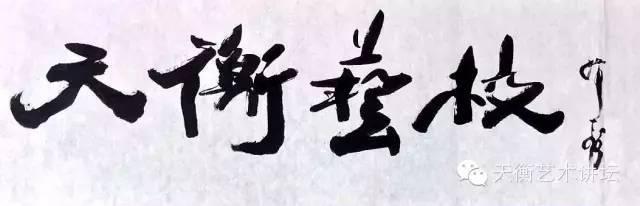 天衡藝校
天衡艺术讲坛